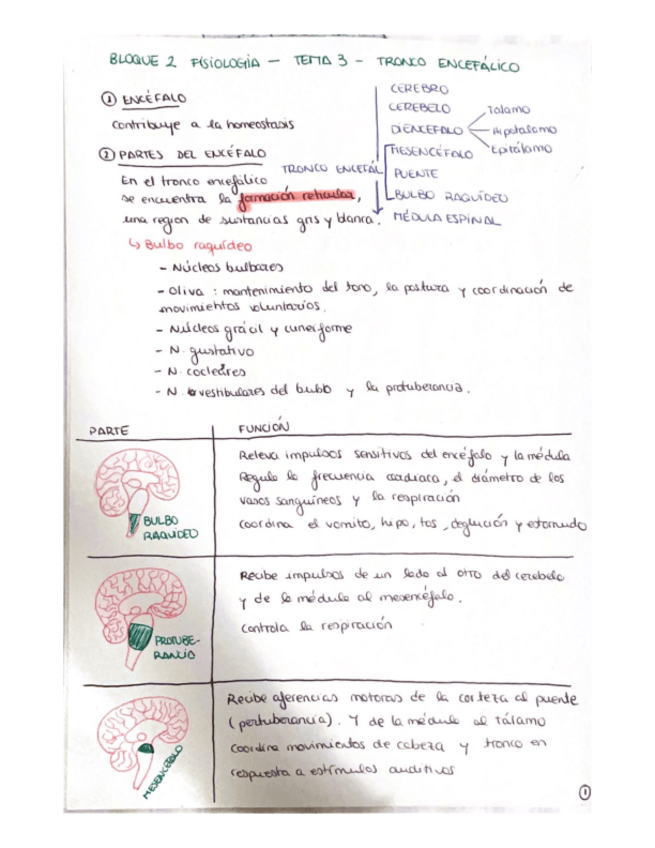 BLOQUE 2 FISIOLOGÍA — TEMA 3 - TRONCO ENCEFÁLICO
① ENCÉFALO
Contribuye a la homeostasis
② PARTES DEL ENCÉFALO
En el tronco encefálico
se encuentra la formación reticular,
una region de sustancias gris y blanca.
CEREBRO
CEREBELO
DIENCEFALO
Tálamo
Hipotálamo
Epitálamo
TRONCO ENCEFÁL
MESENCÉFALO
PUENTE
BULBO RAQUÍDEO
MÉDULA ESPINAL
↳ Bulbo raquídeo
- Núcleos bulbares
- Oliva : mantenimiento del tono, la postura y coordinación de
movimientos voluntarios.
- Núcleos grácil y cuneiforme
- N. gustativo
- N. cocleares
- N. vestibulares del bulbo y la protuberancia.
PARTE
FUNCIÓN
BULBO
RAQUIDEO
Releva impulsos sensitivos del encéfalo y la médula
Regula la frecuencia cardiaca, el diámetro de los
vasos sanguíneos y la respiración
Coordina el vomito, hipo, tos, deglución y estornudo
PROTUBE-
RANCIA
Recibe impulsos de un lado al otro del cerebelo
y de la médula al mesencéfalo.
Controla la respiración
MESENCÉFALO
Recibe aferencias motoras de la corteza al puente
(pertuberancia). Y de la médula al tálamo
Coordina movimientos de cabeza y tronco en
respuesta a estímulos auditivos
①